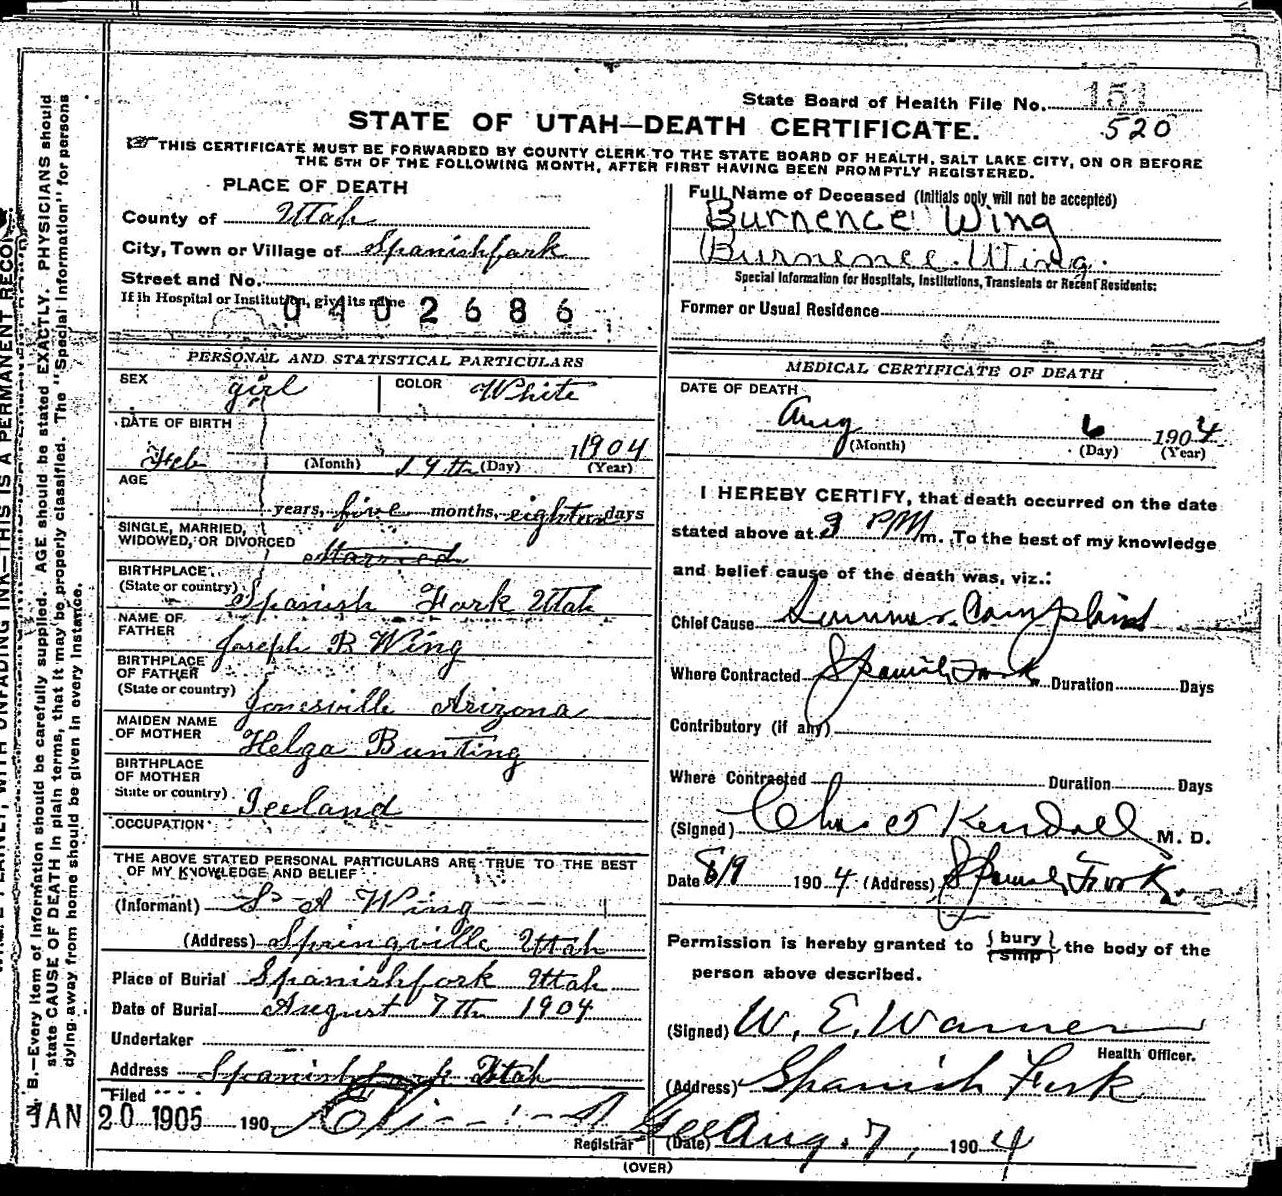 State Board of Health File No. 151
520
STATE OF UTAH—DEATH CERTIFICATE.
THIS CERTIFICATE MUST BE FORWARDED BY COUNTY CLERK TO THE STATE BOARD OF HEALTH, SALT LAKE CITY, ON OR BEFORE
THE 5TH OF THE FOLLOWING MONTH, AFTER FIRST HAVING BEEN PROMPTLY REGISTERED.
PLACE OF DEATH
County of Utah
City, Town or Village of Spanishfork
Street and No.
If in Hospital or Institution, give its name
0402686
Full Name of Deceased (Initials only will not be accepted)
Burnence Wing
Burnence Wing.
Special Information for Hospitals, Institutions, Transients or Recent Residents:
Former or Usual Residence
PERSONAL AND STATISTICAL PARTICULARS
SEX girl COLOR White
DATE OF BIRTH
Feb 19th 1904
(Month) (Day) (Year)
AGE
years, five months, eighteen days
SINGLE, MARRIED,
WIDOWED, OR DIVORCED Married
BIRTHPLACE
(State or country) Spanish Fork Utah
NAME OF
FATHER Joseph B Wing
BIRTHPLACE
OF FATHER
(State or country) Jonesville Arizona
MAIDEN NAME
OF MOTHER Helga Bunting
BIRTHPLACE
OF MOTHER
State or country) Iceland
OCCUPATION
THE ABOVE STATED PERSONAL PARTICULARS ARE TRUE TO THE BEST
OF MY KNOWLEDGE AND BELIEF
(Informant) S A Wing
(Address) Springville Utah
Place of Burial Spanishfork Utah
Date of Burial August 7th 1904
Undertaker
Address Spanishfork Utah
Filed
JAN 20 1905 190
Registrar
MEDICAL CERTIFICATE OF DEATH
DATE OF DEATH
Aug 6 1904
(Month) (Day) (Year)
I HEREBY CERTIFY, that death occurred on the date
stated above at 3 PM m. To the best of my knowledge
and belief cause of the death was, viz.:
Chief Cause Summer Complaint
Where Contracted Spanish Fork Duration Days
Contributory (if any)
Where Contracted Duration Days
(Signed) Chas Kendall M. D.
Date 8/9 1904 (Address) Spanish Fork.
Permission is hereby granted to {bury
{ship} the body of the
person above described.
(Signed) W. E. Warner
Health Officer.
(Address) Spanish Fork
(Date) Aug. 7, 1904
(OVER)
WITH UNFADING INK—THIS IS A PERMANENT RECORD.
N. B.—Every item of information should be carefully supplied. AGE should be stated EXACTLY. PHYSICIANS should
state CAUSE OF DEATH in plain terms, that it may be properly classified. The "Special Information" for persons
dying away from home should be given in every instance.